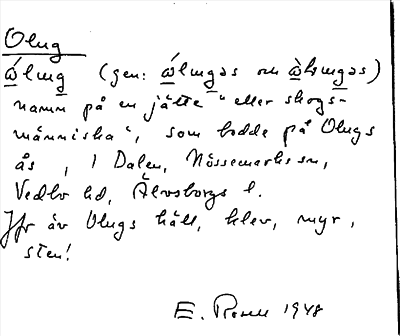 Olug
ώlug (gen: ώlugas och ὼlugas)
namn på en jätte "eller skogs-
människa", som bodde på Olugs
ås, i Dalen, Nössemarks sn,
Vedbo hd, Älvsborgs l.
Jfr äv Olugs häll, klev, myr,
sten!
E. 1948